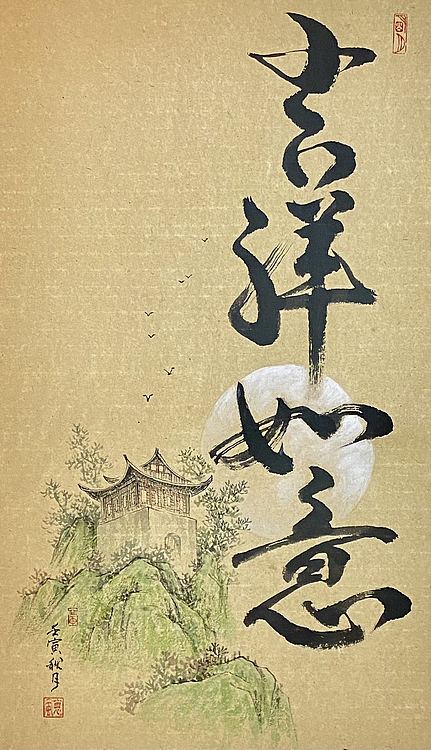 吉祥如意
壬寅秋月